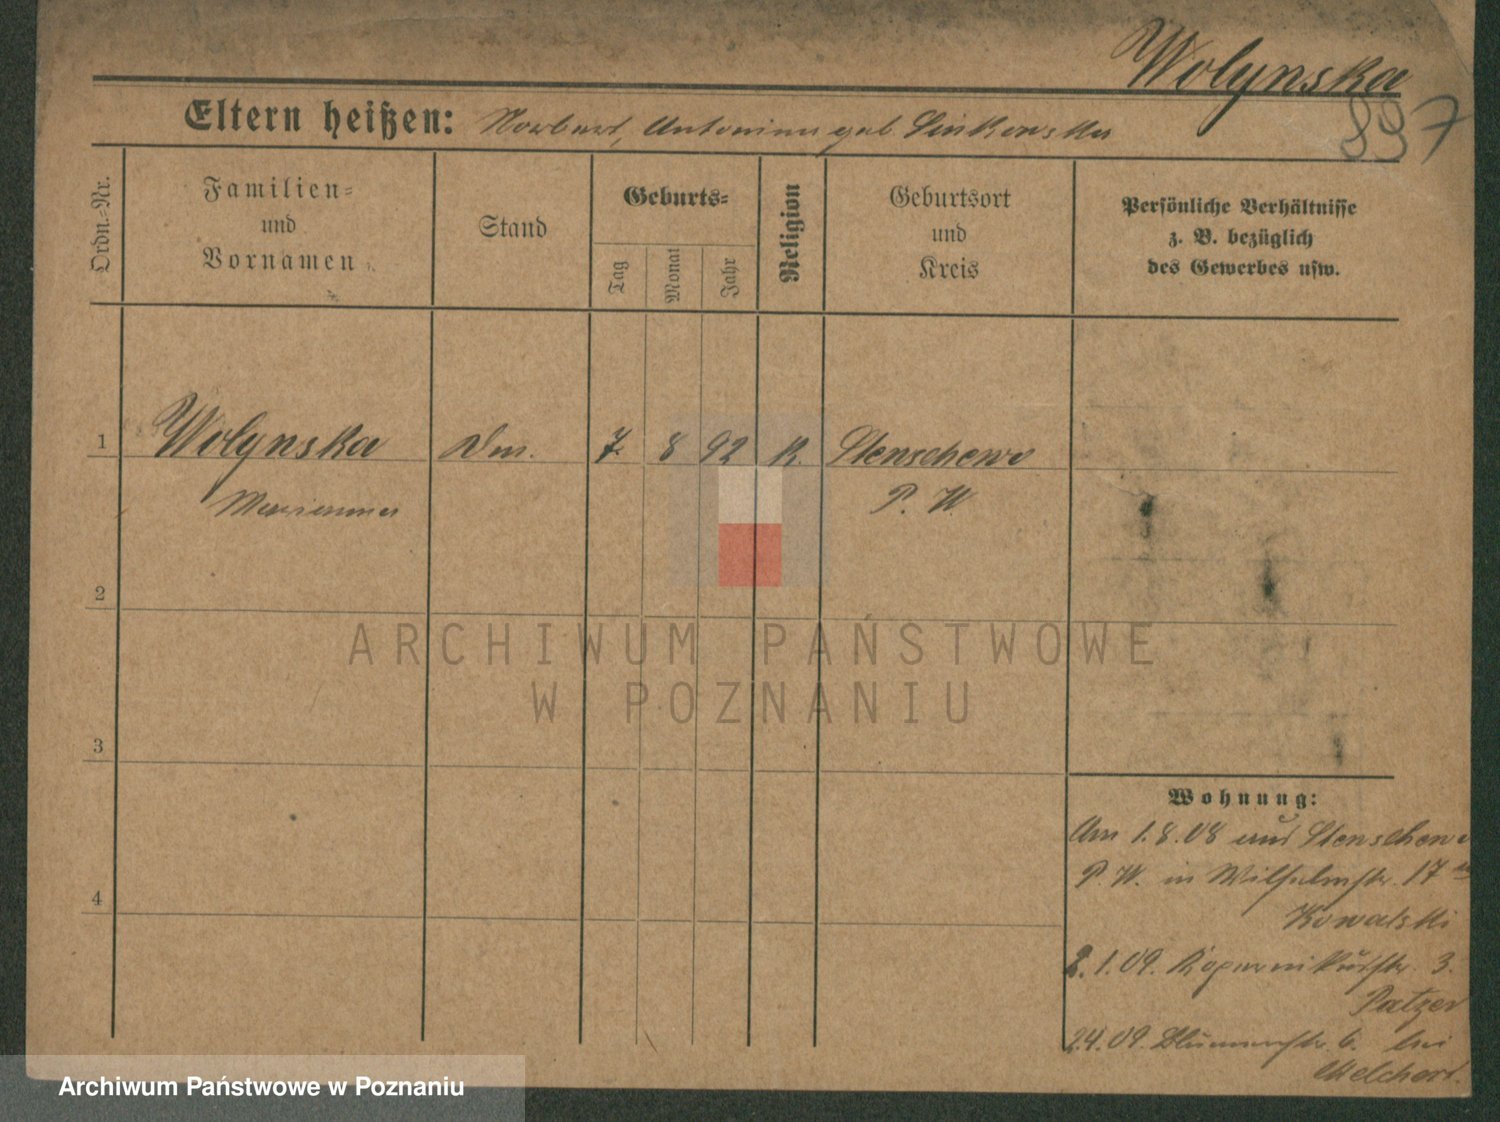 Wolynska
897
Eltern heißen: Norbert, Antonina geb Sinkowska
Ordn.=Nr.
Familien=
und
Vornamen
Stand
Geburts=
Tag
Monat
Jahr
Religion
Geburtsort
und
Kreis
Persönliche Verhältnisse
z. B. bezüglich
des Gewerbes usw.
1 Wolynska Dm. 7. 8 92 K. Stenschewo
Marianna P. W.
2
3
4
ARCHIWUM PAŃSTWOWE
W POZNANIU
Wohnung:
Am 1.8.08 aus Stenschewo
P. W. in Wilhelmstr. 17
Kowalski
2.1.09. Kopernikusstr. 3.
Patzer
2.4.09. Blumenstr. 6. bei
Melchert.
Archiwum Państwowe w Poznaniu